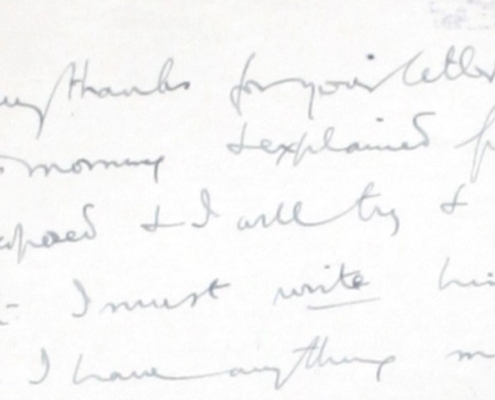 thanks for your letter
morning & explained
& I will try &
I must write
I have anything